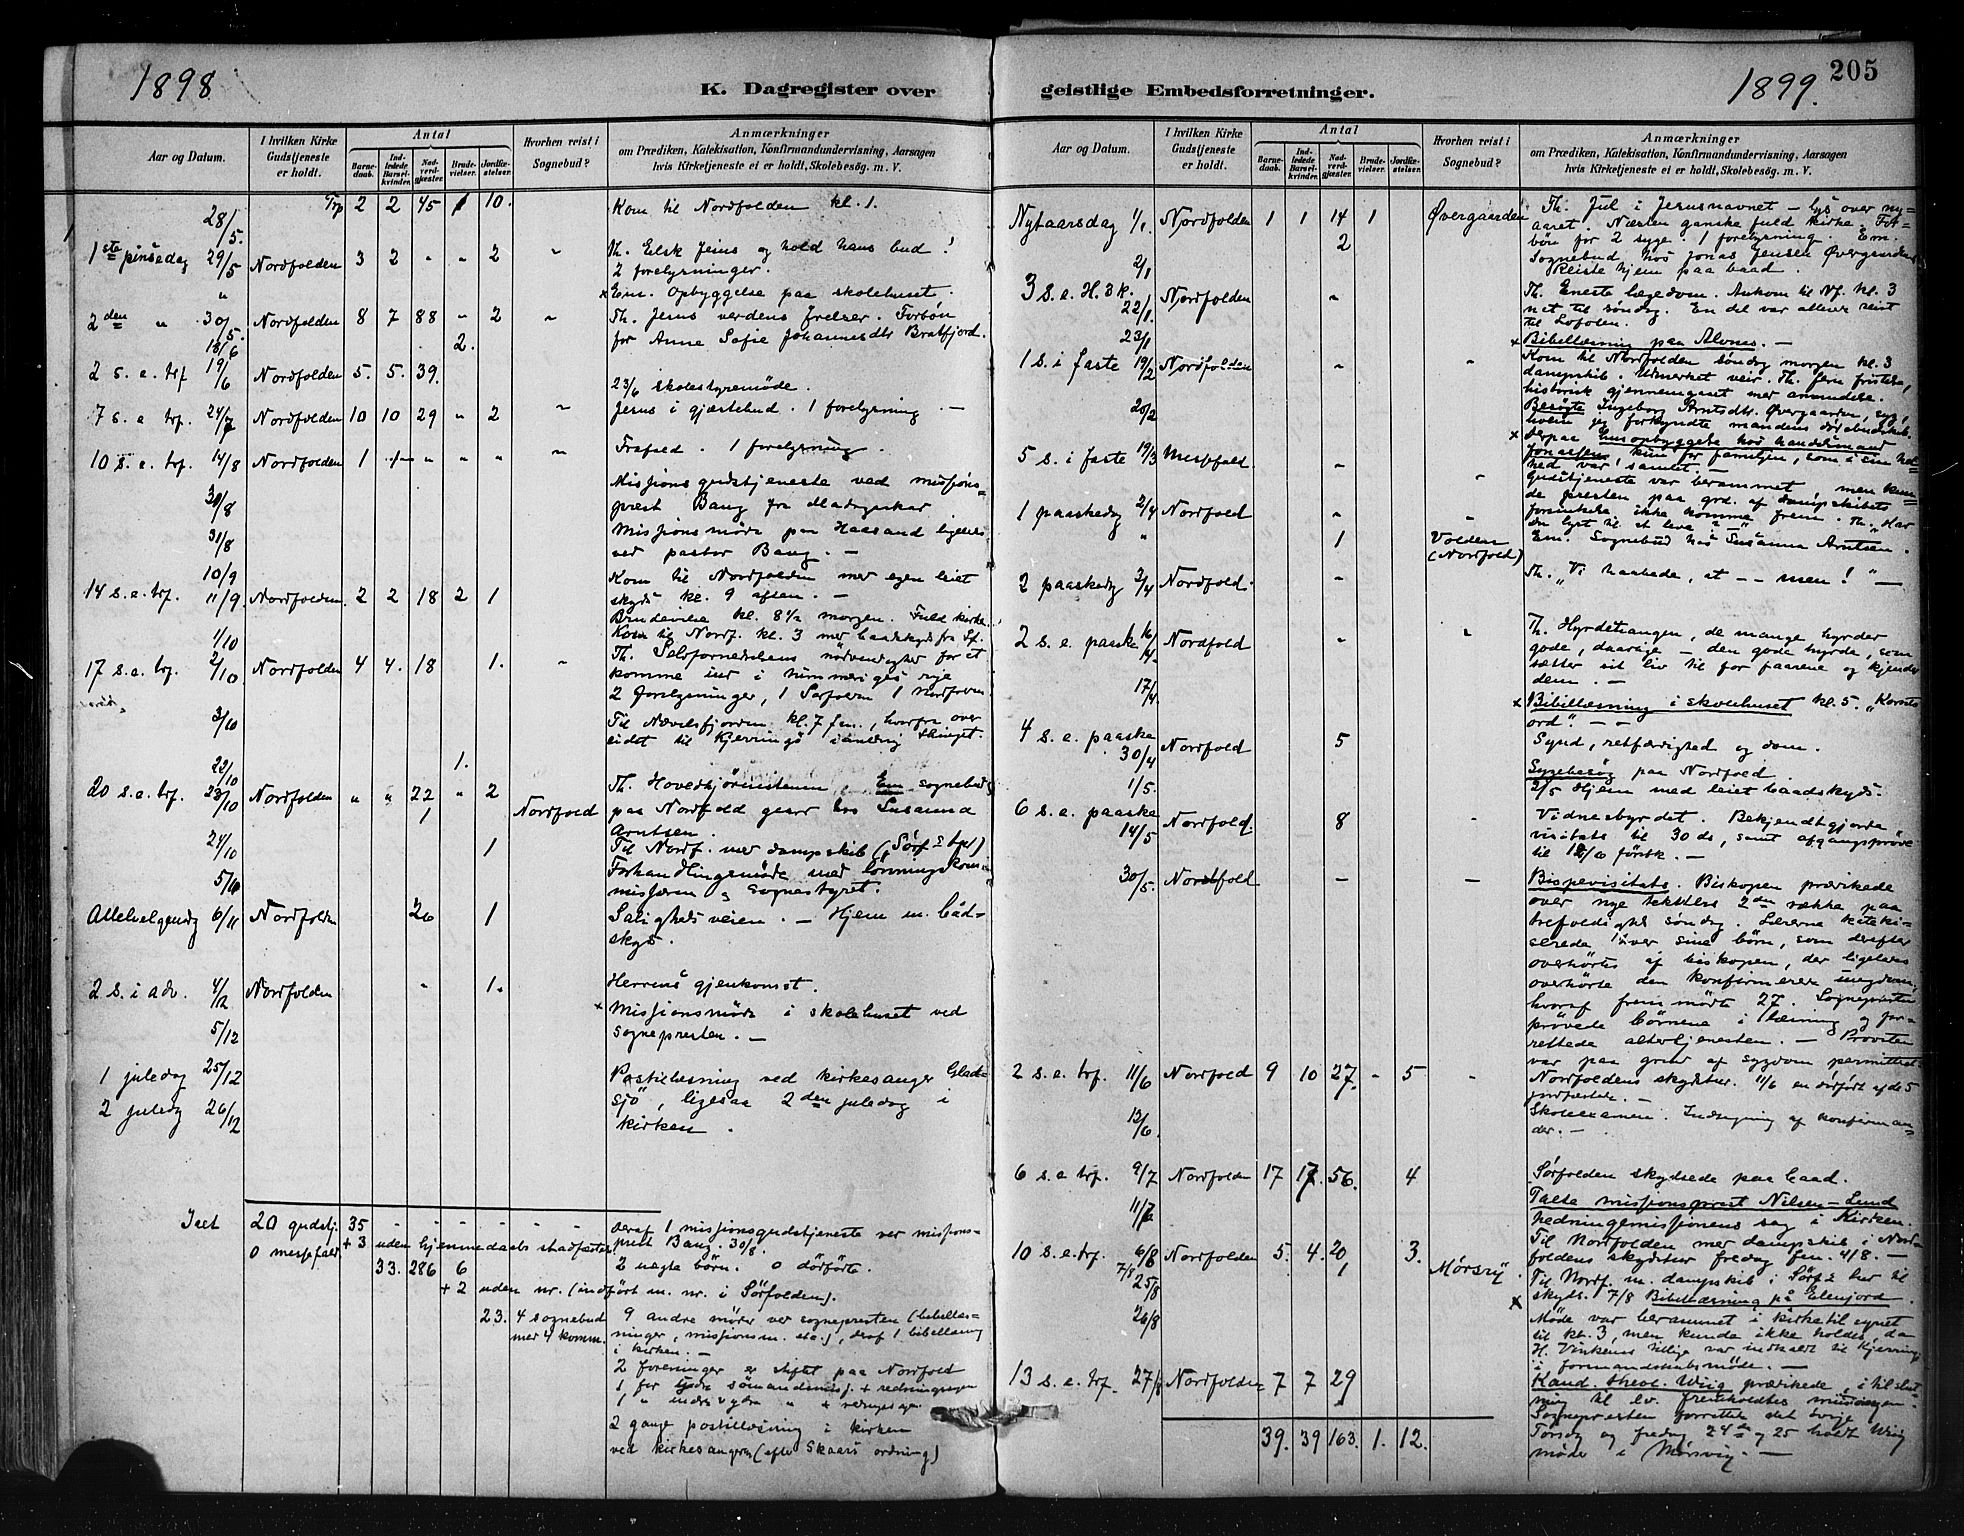 1898
K. Dagregister over
Aar og Datum.
I hvilken Kirke Gudstjeneste er holdt.
Antal
Barnedaab.
Indledede Barselkvinder.
Nadverdgjæster.
Brudevielser.
Jordfæstelser.
Hvorhen reist i Sognebud?
Anmærkninger
om Prædiken, Katekisation, Konfirmandundervisning, Aarsagen
hvis Kirketjeneste ei er holdt, Skolebesøg. m. V.
28/5. Trp 2 2 45 1 10. Kom til Nordfolden kl. 1.
1ste pinsedag 29/5 Nordfolden 3 2 " " 2 " Th. Elsk Jesus og hold hans bud!
2 forelysninger.
x Em. Opbyggelse paa skolehuset.
2den " 30/5. Nordfolden 8 7 88 " 2 " Th. Jesus verdens frelser. Forbøn
18/6 2. for Anne Sofie Johannesdtr Bratfjord.
2 s. e. trf 19/6 Nordfolden 5. 5. 39.
23/6 skolestyremøde.
7 s. e. trf. 24/7 Nordfolden 10 10 29 " 2 " Jesus i gjæstebud. 1 forelysning. —
10 s. e. trf. 14/8 Nordfolden 1 1 - " " " " Frafald. 1 forelysning.
30/8 Missionsgudstjeneste ved missions-
prest Bang fra Madagaskar
31/8 Missionsmøde paa Haasand ligeledes
ved pastor Bang. —
10/9 Kom til Nordfolden med egen leiet
14 s. e. trf. 11/9. Nordfolden. 2 2 18 2 1 skyds kl. 9 aften. —
Brudevielse kl. 8 1/2 morgen. Fuld kirke.
1/10 Kom til Nordf. kl. 3 med baadskyds fra Sf.
17 s. e. trf. 2/10 Nordfolden 4 4. 18 1. " Th. Selvfornedelsens nødvendighed for at
komme ind i himmeriges rige
2 forelysninger, 1 Sørfolden 1 Nordfolden
3/10 Til Nævelsfjorden kl. 7 fm., hvorfra over
eidet til Kjerringø
22/10 1.
20 s. e. trf. 23/10 Nordfolden " " 22 " 2 Th. Hovedhjørnestenen. Em sognebud
1 Nordfold paa Nordfold gaard hos Susanna
Arntsen.
24/10 1 Til Nordf. med dampskib (Sørf
5/11 Forhandlingsmøde med lønningskom-
missjæren og sognestyret.
Allehelgendg 6/11 Nordfolden 20 1 Salighedsveien. — Hjem m. båd-
skyds.
2 s. i adv. 4/12 Nordfolden " 1. Herrens gjenkomst.
5/12 x Missionsmøde i skolehuset ved
sognepresten. —
1 juledag 25/12 Postillesning ved kirkesanger Glad-
2 juledg 26/12 sjö, ligesaa 2den juledag i
kirken.
Ialt 20 gudstj. 35 - - - - - - deraf 1 missionsgudstjeneste ved missions-
0 messefald + 3 uden hjemmedaabs stadfæstelse prest Bang. 30/8.
33. 286 6 2 uægte børn. 0 dødfødte.
+ 2 uden nr. (indført m. nr. i Sørfolden).
23. 4 sognebud 9 andre møder ved sognepresten (bibellæs-
med 4 komm. ninger, missionsm. etc.), deraf 1 bibellæsning
i kirken. —
2 foreninger er stiftet paa Nordfold
1, for sömandsmisj. +
1 " indre
2 gange postillesning i kirken
ved kirkesangeren (efter Skaars ordning)
geistlige Embedsforretninger.
1899. 205
Aar og Datum.
I hvilken Kirke Gudstjeneste er holdt.
Antal
Barnedaab.
Indledede Barselkvinder.
Nadverdgjæster.
Brudevielser.
Jordfæstelser.
Hvorhen reist i Sognebud?
Anmærkninger
om Prædiken, Katekisation, Konfirmandundervisning, Aarsagen
hvis Kirketjeneste ei er holdt, Skolebesøg. m. V.
Nytaarsdag 1/1. Nordfolden 1 1 14 1 Øvergaarden Th. Jul i Jesusnavnet - lys over ny-
2 aaret. Næsten ganske fuld kirke. For-
bøn for 2 syge. 1 forelysning. Em.
Sognebud hos Jonas Jensen Øvergaarden
2/1 Reiste hjem paa baad.
3 s. e. H. 3 k. 22/1. Nordfolden " Th. Eneste lægedom. Ankom til Nf. kl. 3
nat til søndag. En del var allerede reist
til Lofoten.
23/1 x Bibellæsning paa Alvnes. —
1 s. i faste 19/2 Nordfolden " " Kom til Nordfolden søndag morgen kl. 3
dampskib. Udmerket veir. Th. Jesu fristelse,
historisk gjennemgaaet med anvendelse.
20/2 Besøgte Ingeborg Arntsdtr. Øvergaarden, syg,
hvem jeg forkyndte mandens dødsbudskab.
x Derpaa Em opbyggelse hos handelsmand
Jonassen, kun for familjen, som i sin hel-
hed var samlet. —
5 s. i faste 19/3 Messefald. " " Gudstjeneste var berammet men kun-
de presten paa grd. af dampskibets
1 paaskedg 2/4 Nordfold " " forsinkelse ikke komme frem. Th. "Har
du lyst til at leve? —"
" 1 Volden (Nordfold) Em. Sognebud hos Susanna Arntsen.
2 paaskedg 3/4 Nordfold. " Th. "Vi haabede, at -- men!" —
2 s. e. paaske 16/4. Nordfold " " Th. Hyrdetrangen, de mange hyrder
gode, daarlige — den gode hyrde, som
sætter sit liv til for faarene og kjender
dem. —
17/4 x Bibellæsning i skolehuset kl. 5. "Korsets
ord". — —
4 s. e. paaske 30/4 Nordfold 5 Synd, retfærdighed og dom.
1/5. Sygebesøg paa Nordfold.
2/5 Hjem med leiet baadskyds.
6 s. e. paaske 14/5 Nordfold. 8 " Vidnesbyrdet. Bekjendtgjorde
visitats til 30 ds, samt afgangsprøve
til 12/6 førstk. —
30/5. Nordfold — — Bispevisitats. Biskopen prædikede
over nye tekstles 2den række paa
trefoldigheds søndag. Lærerne kateki-
serede over sine børn, som derefter
overhørtes af biskopen, der ligeledes
overhørte den konfirmerede ungdom,
hvoraf fremmødte 27. Sognepresten
prøvede børnene i læsning og for-
rettede altertjenesten. — Provsten
var paa grund af sygdom permitteret.
2 s. e. trf. 11/6 Nordfold 9 10 27. - 5 " Nordfoldens skydstur. 11/6 en dødfødt af de 5
jordfæstede. —
12/6. Skoleexamen. Indtegning af konfirman-
der. —
6 s. e trf. 9/7 Nordfolden 17 17. 56. 4 Sørfolden skydsede paa baad.
11/7 Talte missionsprest Nilsen-Lund
hedningemissionens sag i Kirken.
10 s. e. trf. 6/8 Nordfolden 5. 4. 20 3. Til Nordfolden med dampskib i Nord-
7/8 1 Mørsvig. foldens skydstur fredag fm. 4/8. —
25/8 Til Nordf. m. dampskib i Sørf.s tur til
x skyds. 7/8 Bibellæsning på Elvfjord.
26/8 Møde var berammet i kirketilsynet
til kl. 3, men kunde ikke holdes, da
H. Vinkenes tillige var indkaldt til Kjerringø
i formandskabsmøde. —
13 s. e. trf. 27/8 Nordfolden 7 7 29 Kand. theol. Wiig prædikede, i tilslut-
ning til ev. fremholdtes missionen.
Sognepresten forrettet det øvrige
39. 39 163. 1. 12. Torsdg og fredag 24de og 25 holdt Wiig
møde i Mørsvig. —